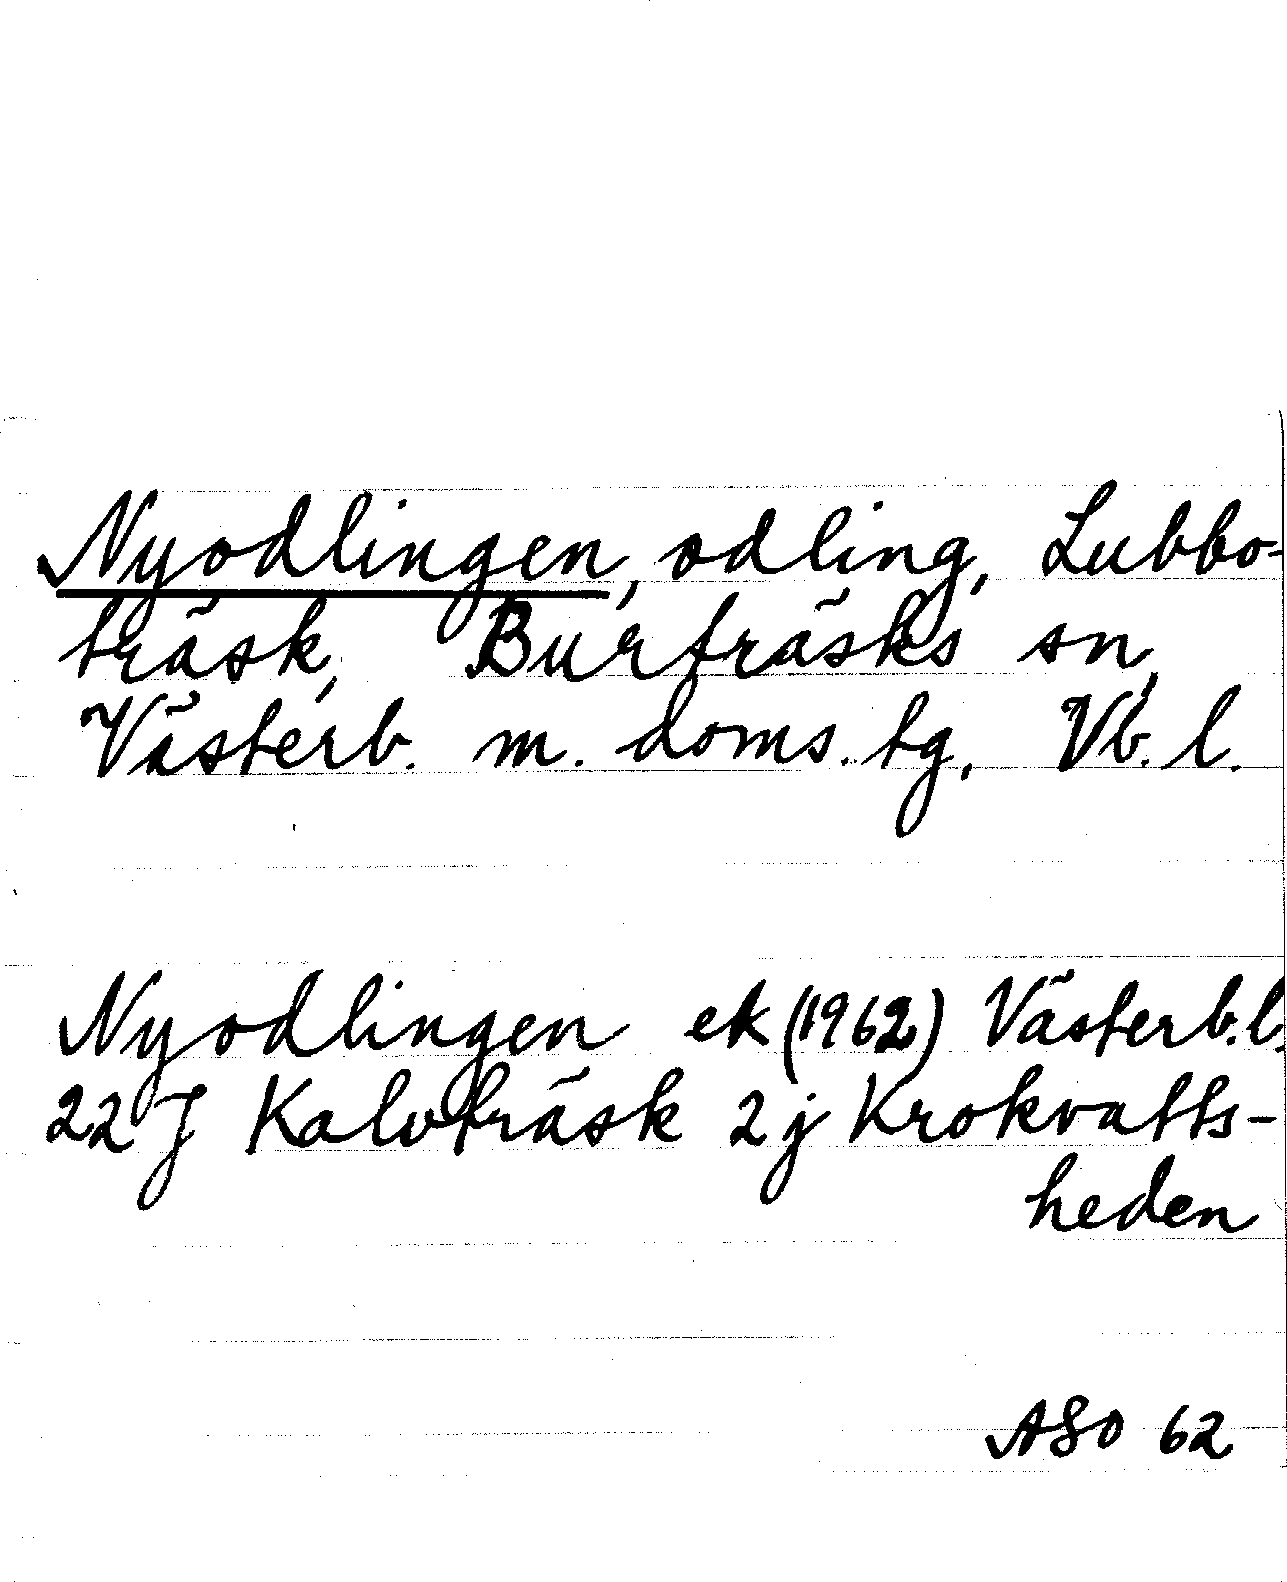 Nyodlingen, odling, Lubbo-
träsk, Burträsks sn,
Västerb. m. doms. tg, Vb. l.
Nyodlingen ek (1962) Västerb. l.
22 J Kalvträsk 2 j Krokvatts-
heden
ASO 62